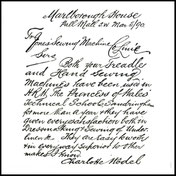 Marlborough House
Pall Mall SW Mar 6/90.
To
Jones Sewing Machine Co Limd
Sirs
Both your Treadles
and Hand Sewing
Machines have been used in
H.R.H. The Princess of Wales'
Technical School Sandringham
for more than a year & they have
given every satisfaction both in
Dressmaking & Sewing of Under
linen &c. They are easily worked
& in every way Superior to other
makes I know
Charlotte Wodel